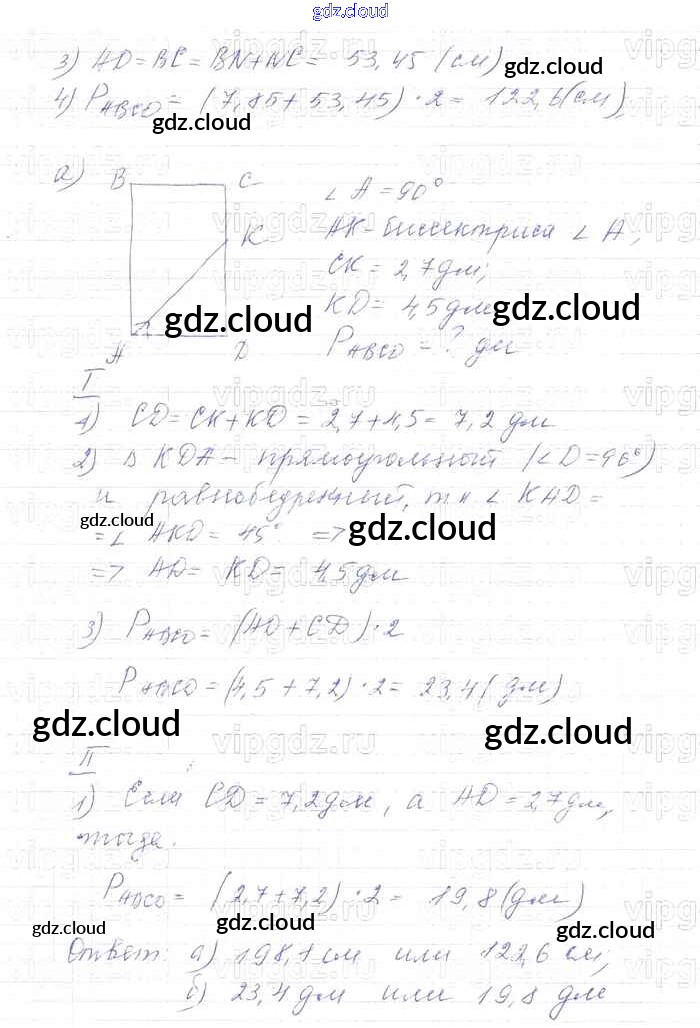 gdz.cloud
3) AD = BC = BN + NC = 53,45 (см)
gdz.cloud
4) P ABCD = (7,85 + 53,45) · 2 = 122,6 (см)
gdz.cloud
а) B C ∠A = 90°
K AK - биссектриса ∠A,
CK = 2,7 дм;
KD = 4,5 дм
gdz.cloud gdz.cloud
A D P ABCD - ? дм
I
1) CD = CK + KD = 2,7 + 4,5 = 7,2 дм
2) Δ KDA - прямоугольный (∠D = 90°)
и равнобедренный, т.к ∠ KAD =
gdz.cloud gdz.cloud
= ∠ AKD = 45° =>
=> AD = KD = 4,5 дм
gdz.cloud
3) P ABCD = (AD + CD) · 2
P ABCD = (4,5 + 7,2) · 2 = 23,4 (дм)
gdz.cloud gdz.cloud
II
1) Если CD = 7,2 дм, а AD = 2,7 дм,
тогда.
P ABCD = (2,7 + 7,2) · 2 = 19,8 (дм)
gdz.cloud gdz.cloud gdz.cloud
Ответ: а) 198,1 см или 122,6 см;
б) 23,4 дм или 19,8 дм